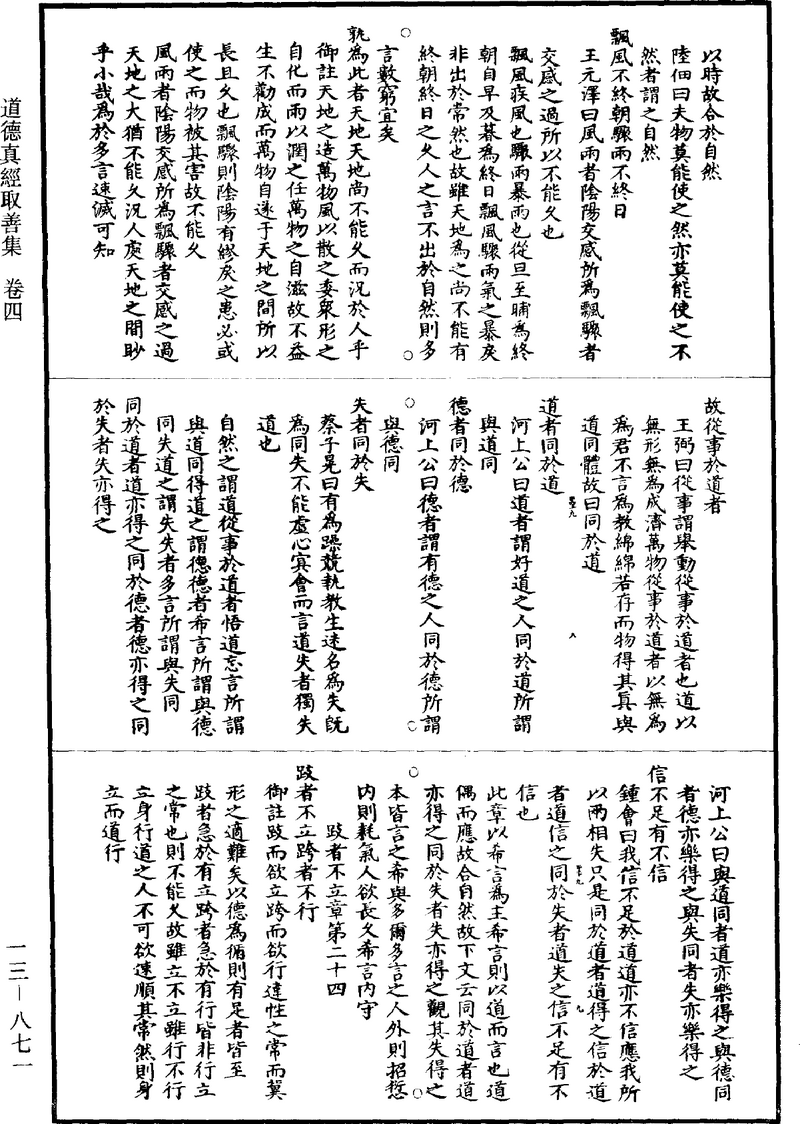 以時故合於自然
陸佃曰夫物莫能使之然亦莫能使之不
然者謂之自然
飄風不終朝驟雨不終日
王元澤曰風雨者陰陽交感所為飄驟者
交感之過所以不能久也
飄風疾風也驟雨暴雨也從旦至晡為終
朝自早及暮為終日飄風驟雨氣之暴戾
非出於常然也故雖天地為之尚不能有
終朝終日之久人之言不出於自然則多
言數窮宜矣
孰為此者天地天地尚不能久而況於人乎
御註天地之造萬物風以散之委衆形之
自化而雨以潤之任萬物之自滋故不益
生不勸成而萬物自遂于天地之間所以
長且久也飄驟則陰陽有繆戾之患必或
使之而物被其害故不能久
風雨者陰陽交感所為飄驟者交感之過
天地之大猶不能久況人處天地之間眇
乎小哉為於多言速滅可知
故從事於道者
王弼曰從事謂舉動從事於道者也道以
無形無為成濟萬物從事於道者以無為
為君不言為教綿綿若存而物得其真與
道同體故曰同於道
道者同於道
河上公曰道者謂好道之人同於道所謂
與道同
德者同於德
河上公曰德者謂有德之人同於德所謂
與德同
失者同於失
蔡子晃曰有為躁競執教生迷名為失既
為同失不能虛心冥會而言道失者獨失
道也
自然之謂道從事於道者悟道忘言所謂
與道同得道之謂德德者希言所謂與德
同失道之謂失失者多言所謂與失同
同於道者道亦得之同於德者德亦得之同
於失者失亦得之
河上公曰與道同者道亦樂得之與德同
者德亦樂得之與失同者失亦樂得之
信不足有不信
鍾會曰我信不足於道道亦不信應我所
以兩相失只是同於道者道得之信於道
者道信之同於失者道失之信不足有不
信也
此章以希言為主希言則以道而言也道
偶而應故合自然故下文云同於道者道
亦得之同於失者失亦得之觀其失得之
本皆言之希與多爾多言之人外則招愆
内則耗氣人欲長久希言内守
跂者不立章第二十四
跂者不立跨者不行
御註跂而欲立跨而欲行違性之常而冀
形之適難矣以德為循則有足者皆至
跂者急於有立跨者急於有行皆非行立
之常也則不能久故雖立不立雖行不行
立身行道之人不可欲速順其常然則身
立而道行
道德真經取善集 卷四
一三—八七一